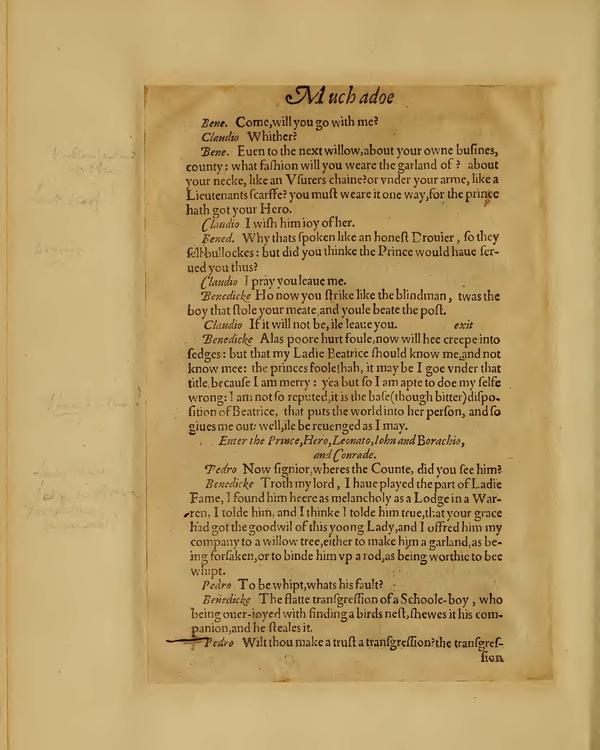 Much adoe
Bene. Come,will you go with me?
Claudio Whither?
Bene. Euen to the next willow,about your owne buſines,
county: what faſhion will you weare the garland of? about
your necke, like an Vſurers chaine? or vnder your arme, like a
Lieutenants ſcarffe? you muſt weare it one way,for the prince
hath got your Hero.
Claudio I wiſh him ioy of her.
Bened. Why thats ſpoken like an honeſt Drouier, ſo they
ſell bullockes: but did you thinke the Prince would haue ſer-
ued you thus?
Claudio I pray you leaue me.
Benedicke Ho now you ſtrike like the blindman, twas the
boy that ſtole your meate,and youle beate the poſt.
Claudio If it will not be, ile leaue you. exit
Benedicke Alas poore hurt foule,now will hee creepe into
ſedges: but that my Ladie Beatrice ſhould know me,and not
know mee: the princes foole!hah, it may be I goe vnder that
title,becauſe I am merry: yea but ſo I am apte to doe my ſelfe
wrong: I am not ſo reputed,it is the baſe(though bitter)diſpo-
ſition of Beatrice, that puts the world into her perſon, and ſo
giues me out: well,ile be reuenged as I may.
Enter the Prince,Hero,Leonato,Iohn and Borachio,
and Conrade.
Pedro Now ſignior,wheres the Counte, did you ſee him?
Benedicke Troth my lord, I haue played the part of Ladie
Fame, I found him heere as melancholy as a Lodge in a War-
ren, I tolde him, and I thinke I tolde him true,that your grace
had got the goodwil of this yoong Lady,and I offred him my
company to a willow tree,either to make him a garland,as be-
ing forſaken,or to binde him vp a rod,as being worthie to bee
whipt.
Pedro To be whipt,whats his fault?
Benedicke The flatte tranſgreſſion of a Schoole-boy, who
being ouer-ioyed with finding a birds neſt,ſhewes it his com-
panion,and he ſteales it.
Pedro Wilt thou make a truſt a tranſgreſſion?the tranſgreſ-
ſion